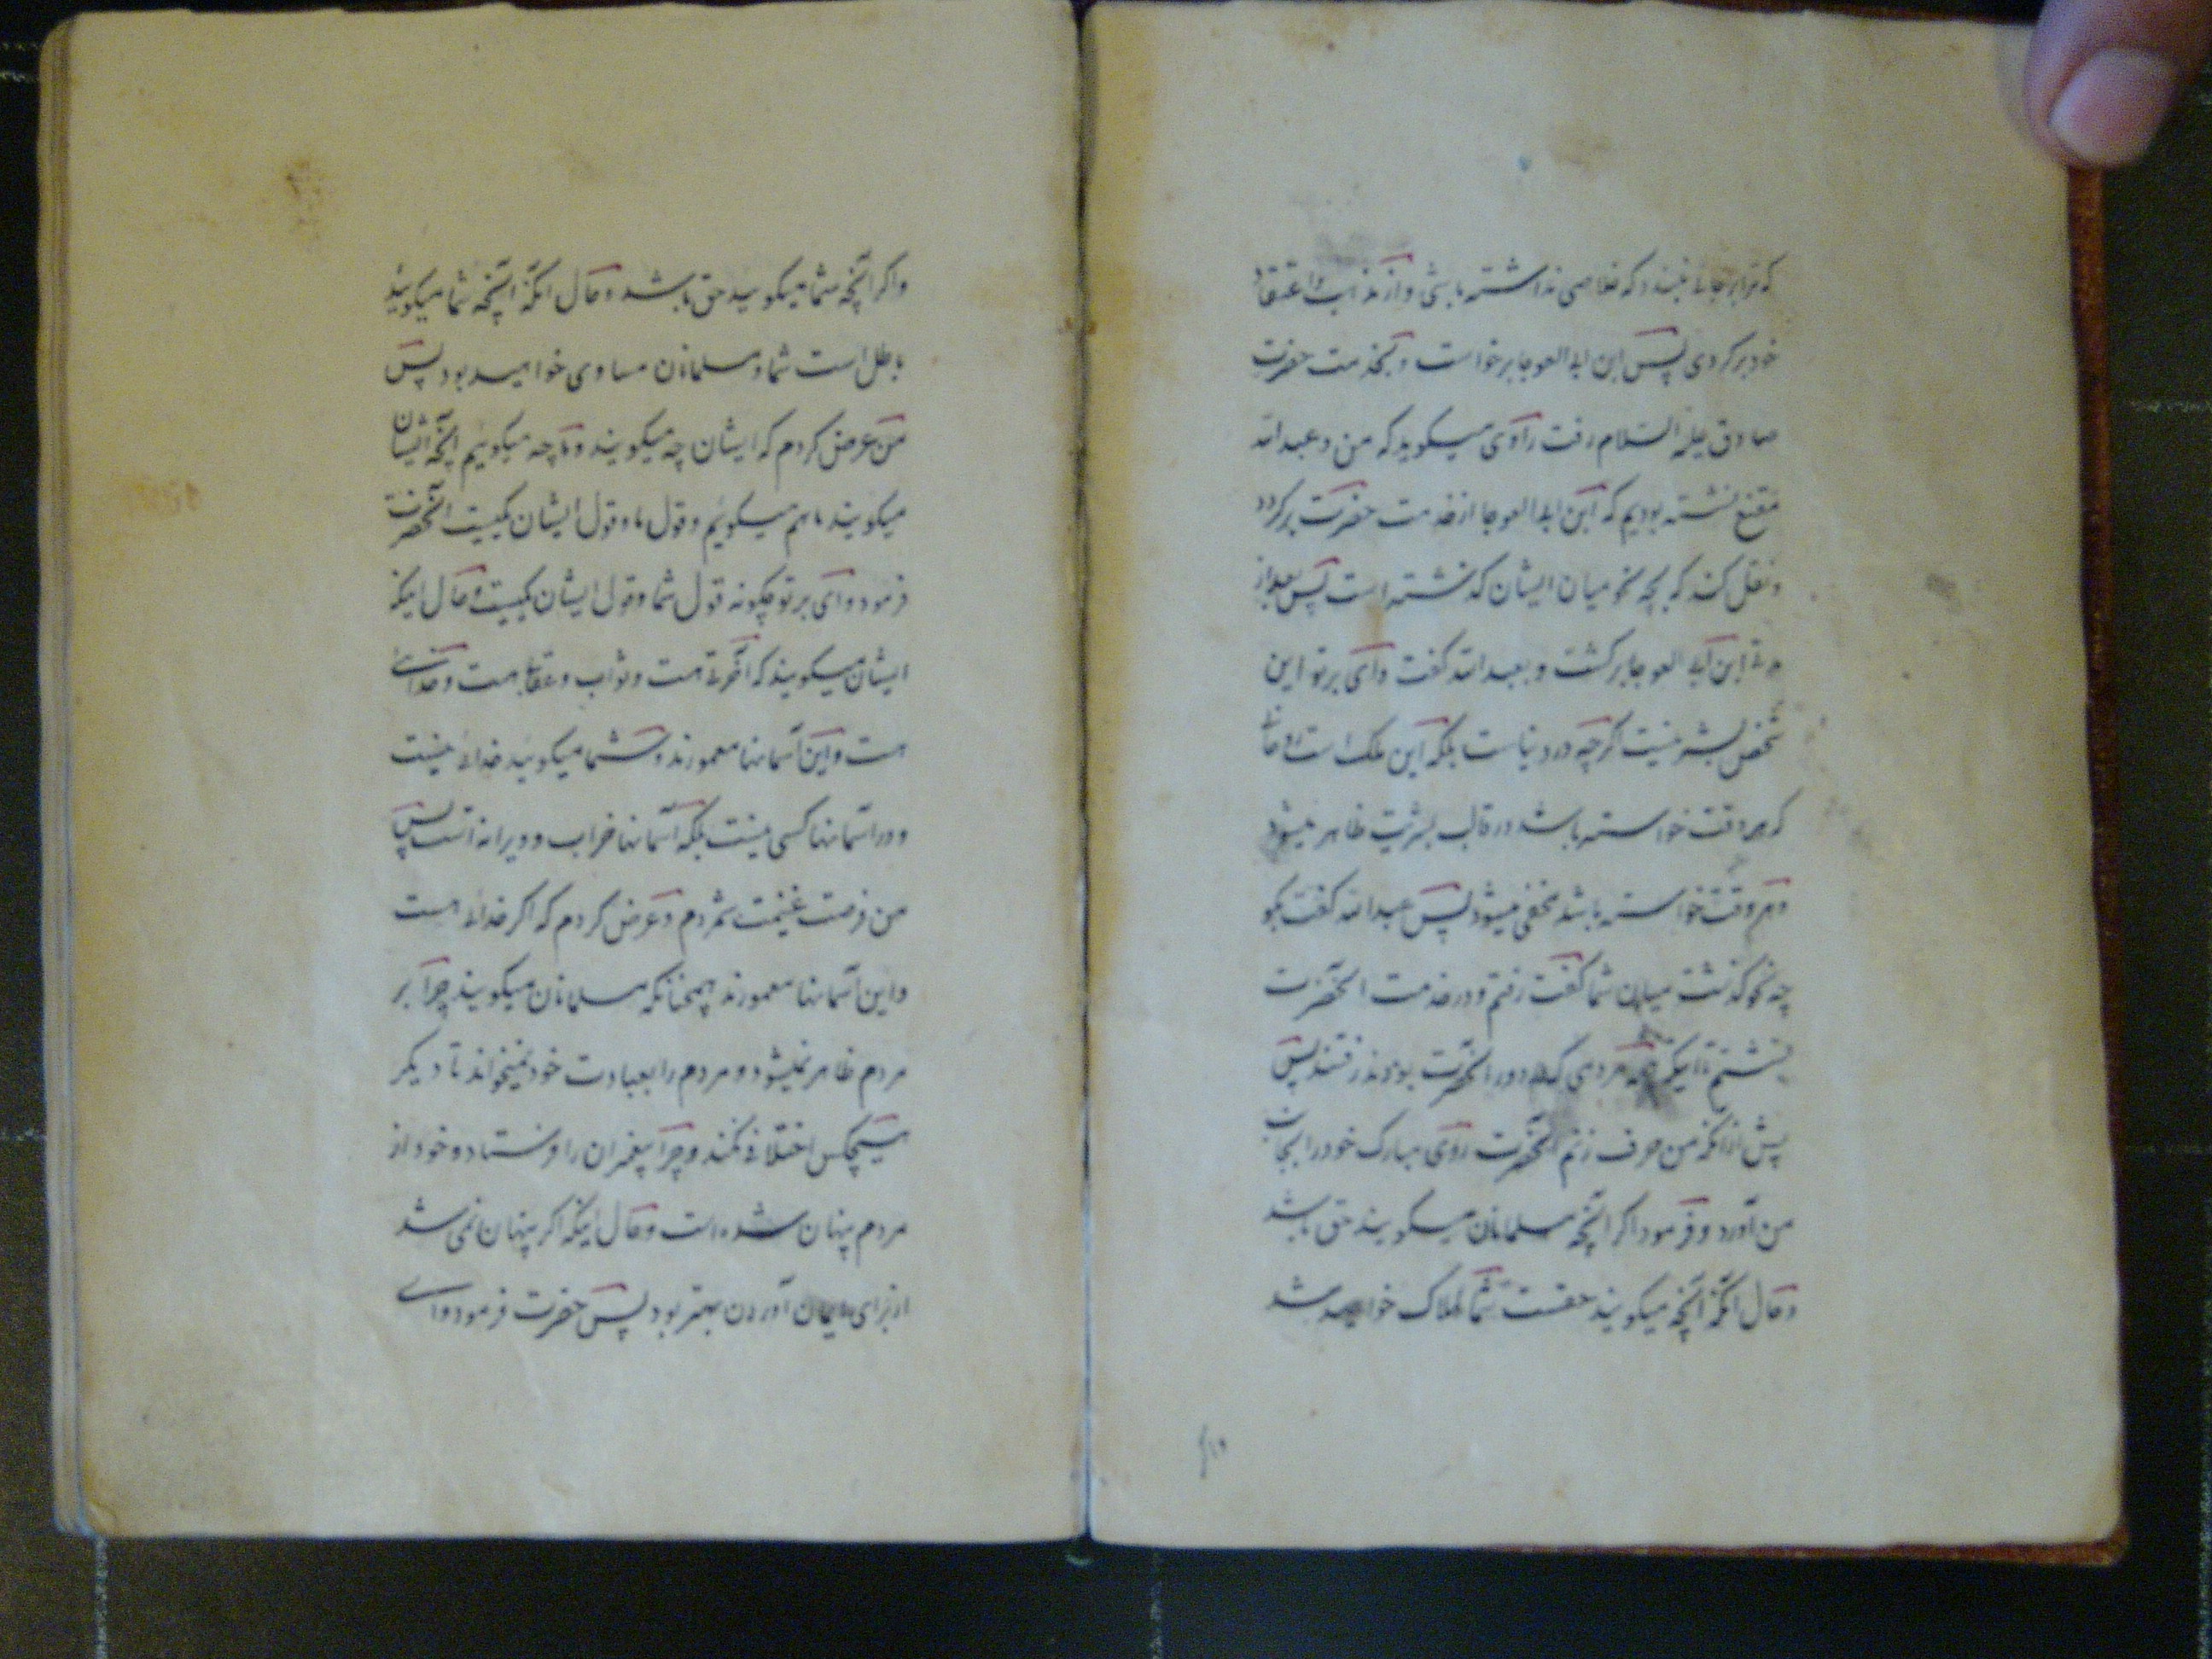 که ترا بر جائے بنبدد که خلاصی نداشته باشی و از مذاهب و اعتقاد
خود بر کردی پس ابن ابی العوجا برخواست و بخدمت حضرت
صادق علیه السلام رفت راوی میکوید که من و عبد الله
مقنع نشسته بودیم که ابن ابی العوجا از خدمت حضرت بر کردد
و نقل کند که بچه نحو میان ایشان کذشته است پس بعد از
ابن ابی العوجا بر کشت و بعبد الله کفت وای بر تو این
شخص بشر نیست کرچه در دنیاست بلکه این ملک است
که هر وقت خواسته باشد در قالب بشریت ظاهر میشود
و هر وقت خواسته باشد مخفی میشود پس عبد الله کفت بکو
چه نحو کذشت میان شما کفت رفتم و در خدمت آنحضرت
نشستم تا اینکه همه مردمی که در دور آنحضرت بودند رفتند پس
پیش از آنکه من حرف زنم آنحضرت روی مبارک خود را بجانب
من آورد و فرمود اکر آنچه مسلمانان میکویند حق باشد
و حال آنکه آنچه میکویند حقست شما هلاک خواهید شد
و اکر آنچه شما میکویید حق باشد و حال آنکه آنچه شما میکویید
باطل است شما و مسلمانان مساوی خواهید بود پس
من عرض کردم که ایشان چه میکویند و ما چه میکوییم آنچه ایشان
میکویند ما هم میکوییم و قول ما و قول ایشان یکیست آنحضرت
فرمود وای بر تو چکونه قول شما و قول ایشان یکیست و حال اینکه
ایشان میکویند که آخرتے هست و ثواب و عقابے هست و خدائے
هست و این آسمانها معمورند و شما میکویید خدائے نیست
و در آسمانها کسی نیست بلکه آسمانها خراب و ویرانه است پس
من فرصت غنیمت شمردم و عرض کردم که اکر خدائے هست
و این آسمانها معمورند همچنانکه مسلمانان میکویند چرا بر
مردم ظاهر نمیشود و مردم را بعبادت خود نمیخواند تا دیکر
هیچکس اختلاف نکند و چرا پیغمبران را فرستاده و خود از
مردم پنهان شده است و حال اینکه اکر پنهان نمی شد
از برای ایمان آوردن بهتر بود پس حضرت فرمود وای